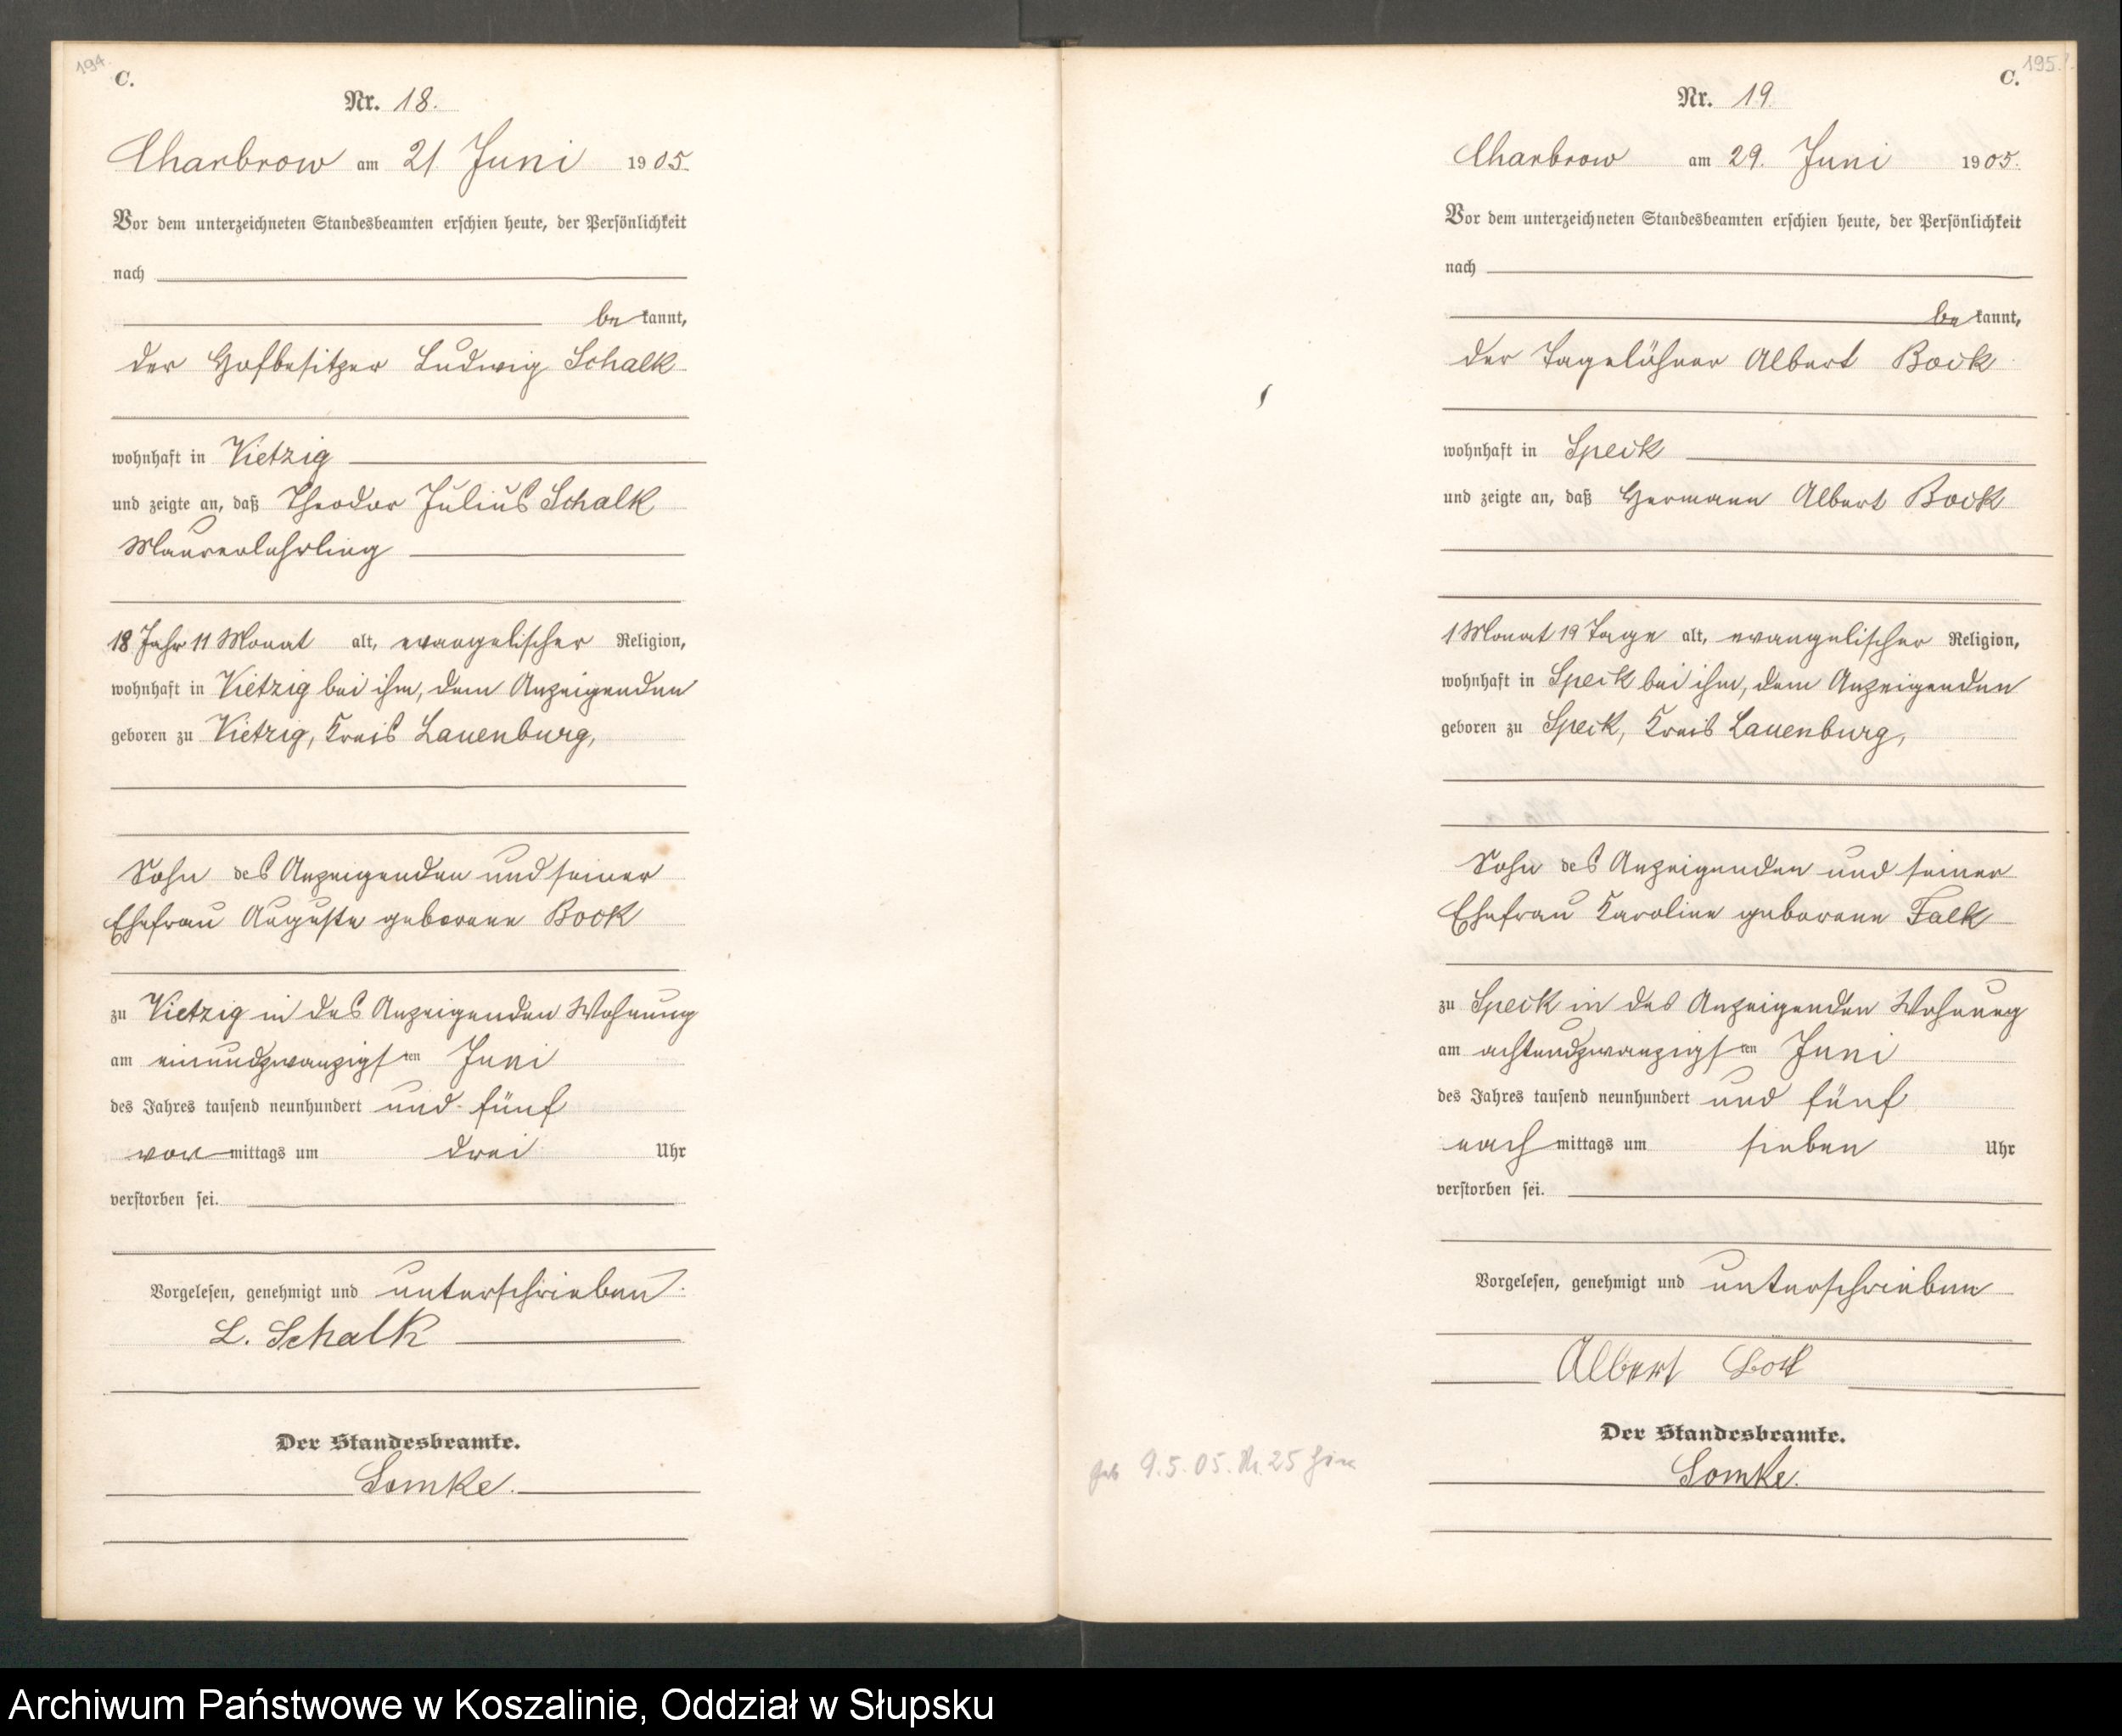 194.
C.
Nr. 18.
Charbrow am 21. Juni 1905.
Vor dem unterzeichneten Standesbeamten erschien heute, der Persönlichkeit
nach
be kannt,
der Hofbesitzer Ludwig Schalk
wohnhaft in Vietzig
und zeigte an, daß Theodor Julius Schalk
Maurerlehrling
18 Jahr 11 Monat alt, evangelischer Religion,
wohnhaft in Vietzig bei ihm, dem Anzeigenden
geboren zu Vietzig, Kreis Lauenburg,
Sohn des Anzeigenden und seiner
Ehefrau Auguste geborene Bock
zu Vietzig in des Anzeigenden Wohnung
am einundzwanzigsten Juni
des Jahres tausend neunhundert und fünf
vor mittags um drei Uhr
verstorben sei.
Vorgelesen, genehmigt und unterschrieben.
L. Schalk
Der Standesbeamte.
Lomke.
195.
C.
Nr. 19.
Charbrow am 29. Juni 1905.
Vor dem unterzeichneten Standesbeamten erschien heute, der Persönlichkeit
nach
be kannt,
der Tagelöhner Albert Bock
wohnhaft in Speck
und zeigte an, daß Hermann Albert Bock
1 Monat 19 Tage alt, evangelischer Religion,
wohnhaft in Speck bei ihm, dem Anzeigenden
geboren zu Speck, Kreis Lauenburg,
Sohn des Anzeigenden und seiner
Ehefrau Karoline geborene Falk
zu Speck in des Anzeigenden Wohnung
am achtundzwanzigsten Juni
des Jahres tausend neunhundert und fünf
nach mittags um sieben Uhr
verstorben sei.
Vorgelesen, genehmigt und unterschrieben
Albert Bock
Der Standesbeamte.
Lomke.
geb 9.5.05. Nr. 25 hier
Archiwum Państwowe w Koszalinie, Oddział w Słupsku